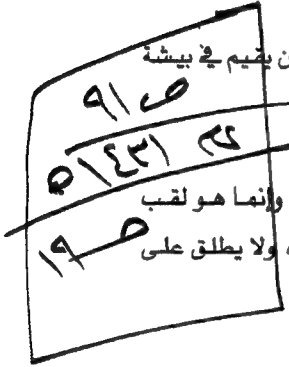 يقيم في بيشة
ص ٩١
وإنما هو لقب
ولا يطلق على
ص ١٩